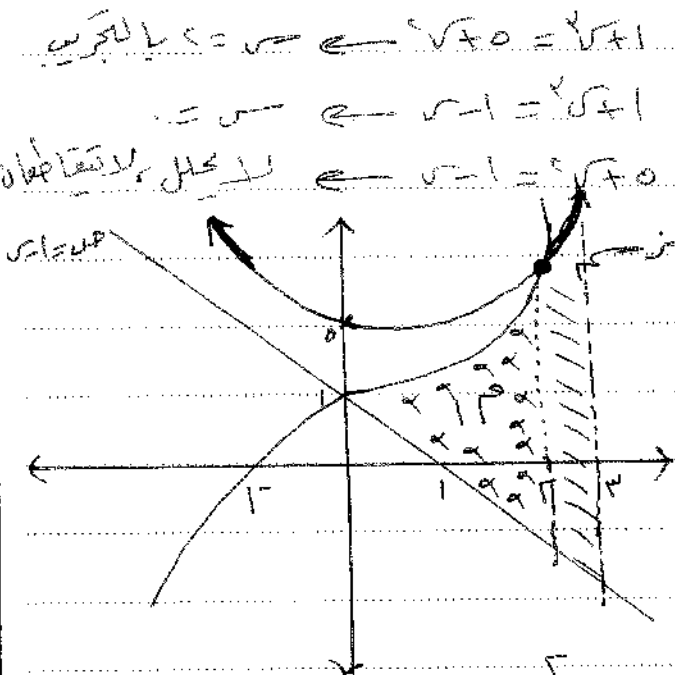 س³+١ = س²+٥ ← س=٢ بالتجريب
س³+١ = ١-س ← س=٠
س²+٥ = ١-س ← لا يحلل، لا يتقاطعان
ص=١-س
٥
١
م١
١-
١
٢
٣
٢